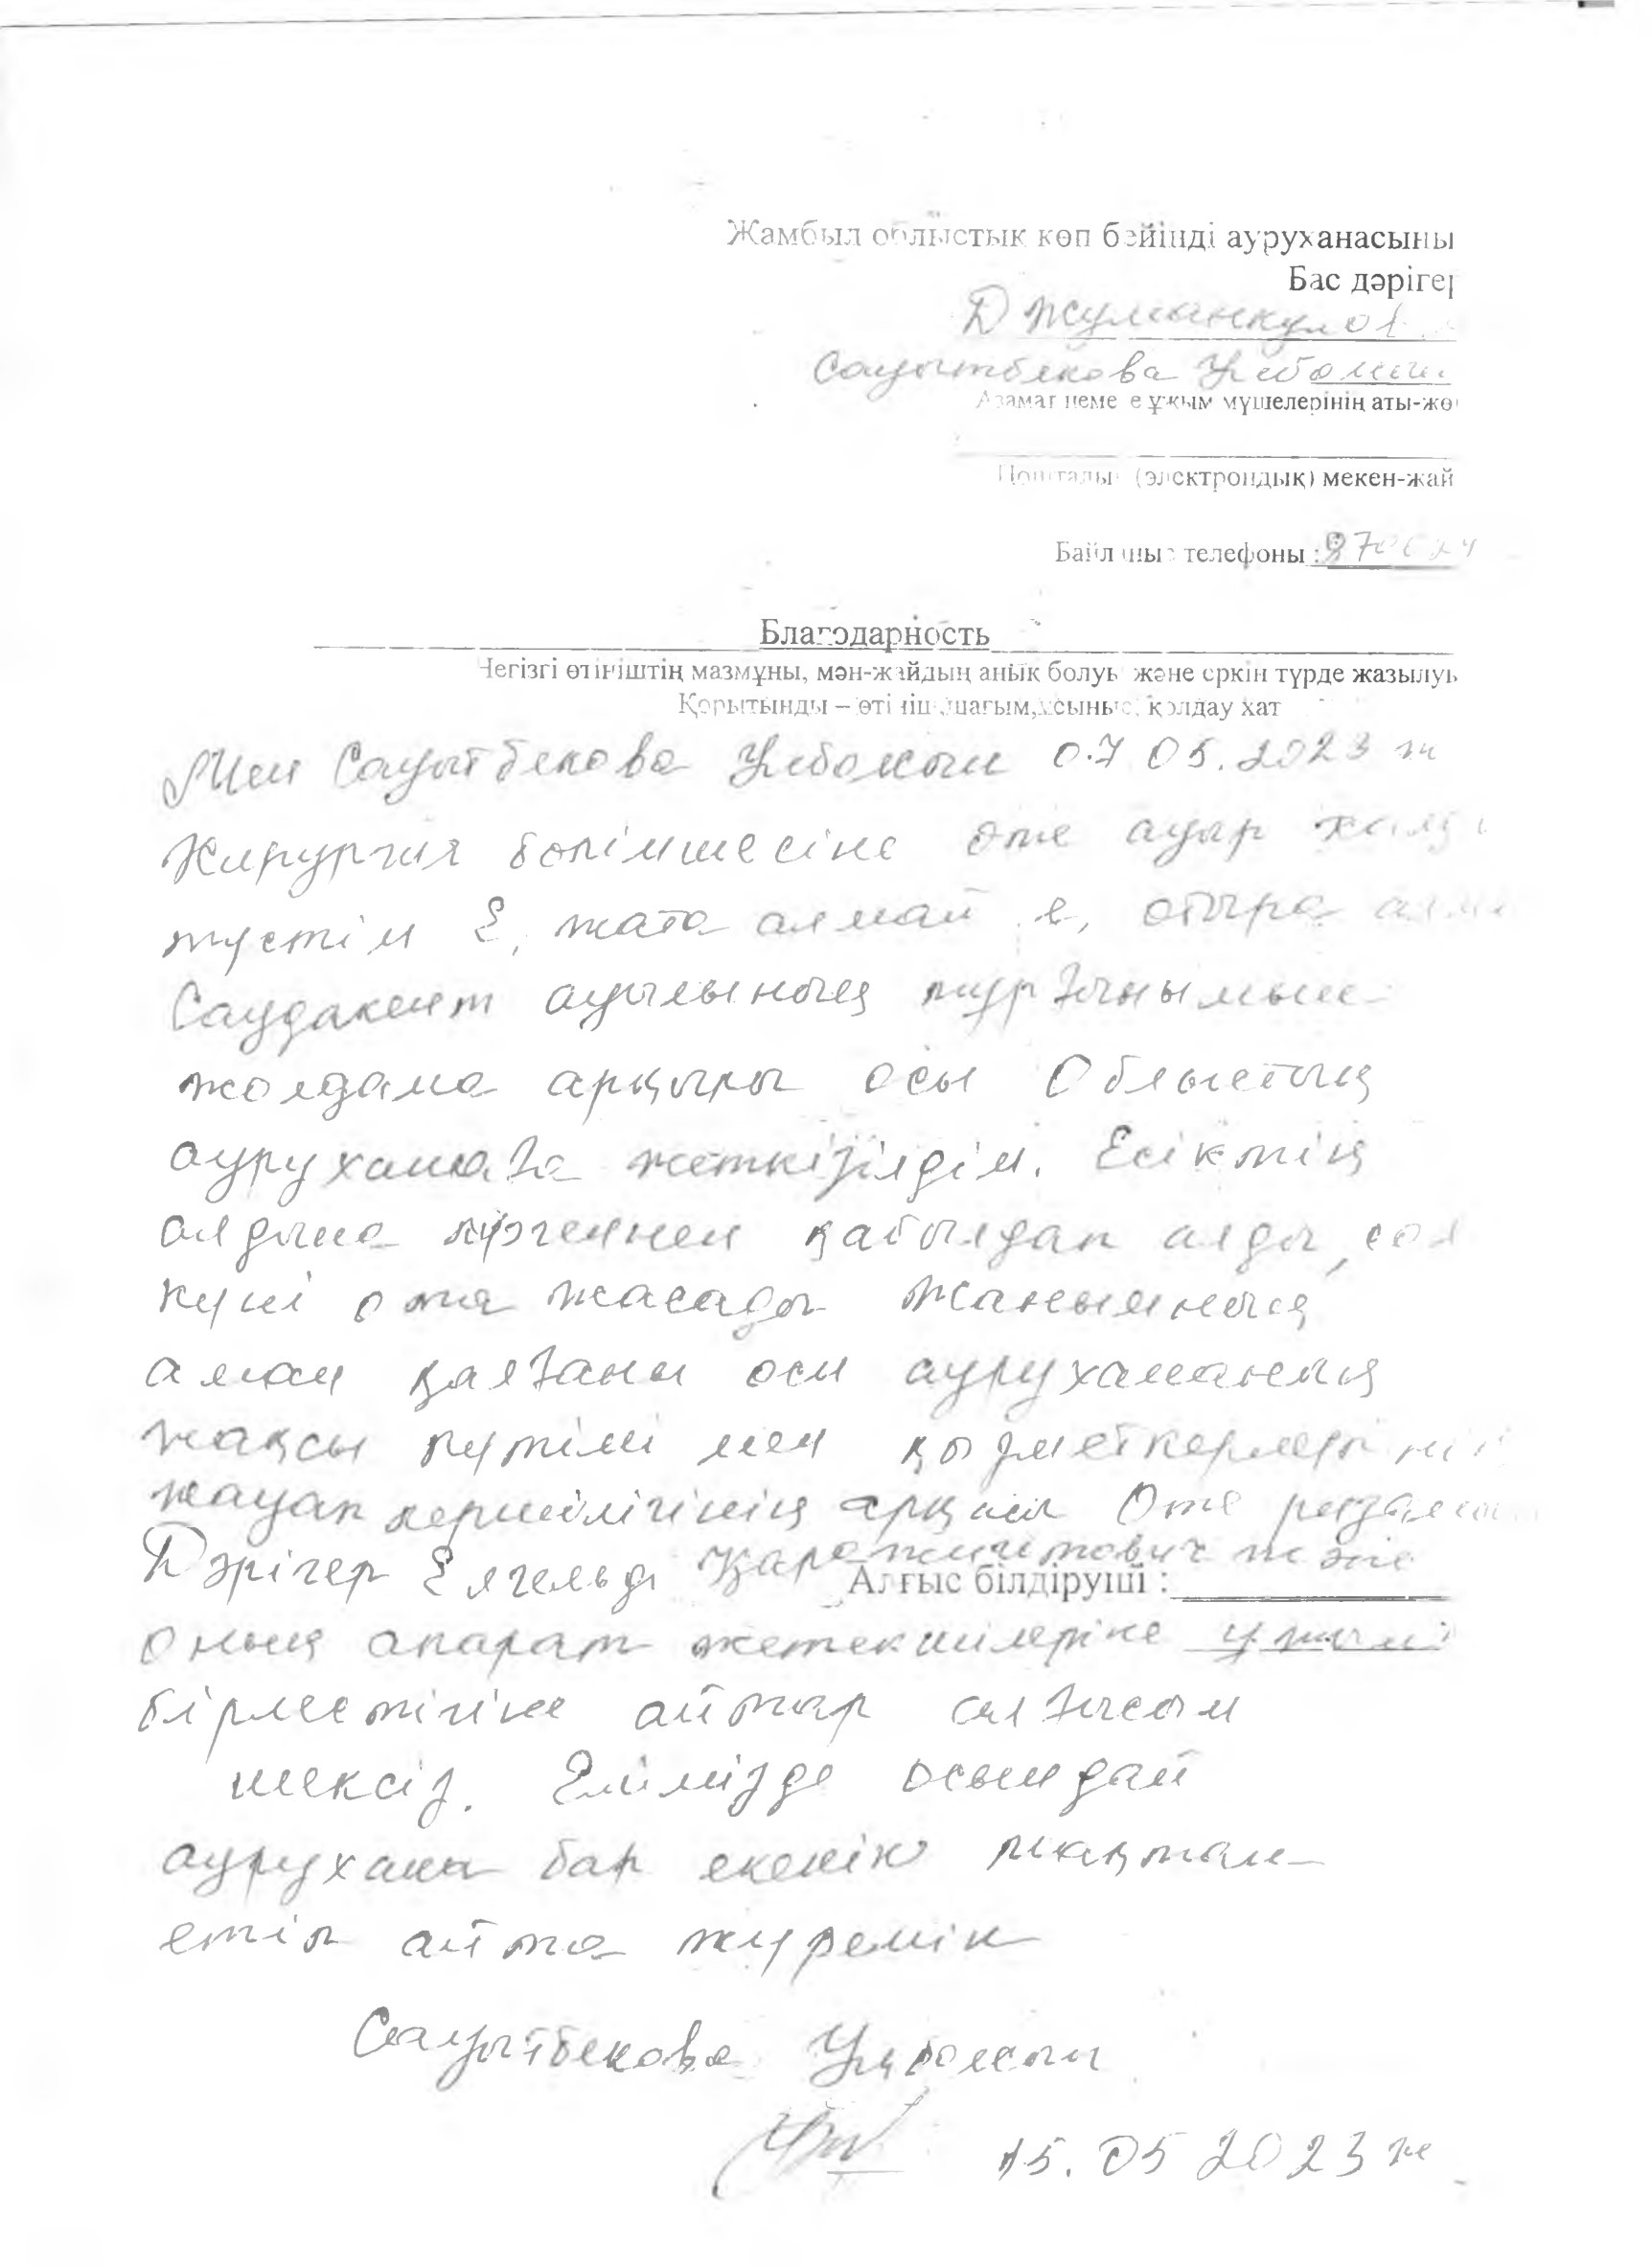 Жамбыл облыстык көп бейінді ауруханасыны
Бас дәрігер
Джуманкулов
Сауытбекова Улболсын
Азамат немесе ұжым мүшелерінің аты-жө
(электрондық) мекен-жай
Байланыс телефоны :
Благодарность
Негізгі өтініштің мазмұны, мән-жайдың анық болуы және еркін түрде жазылуы
Қорытынды – өтініш,шағым,ұсыныс, қолдау хат
Мен Сауытбекова Улболсын 07 05.2023 ж
Хирургия бөлімшесіне өте ауыр
түстім Е, жата алмай е, отыра
Саудакент ауылының тұрғынымын
жолдама арқылы осы Облыстық
ауруханаға жеткізілдім. Есіктің
алдына қабылдап алды, сол
күні ота жасады Жанымның
аман қалғаны осы аурухананың
жақсы күтімі мен қызметкерлерінің
жауапкершілігінің арқасы Өте
Дәрігер Елгельді және
Алғыс білдіруші :
Оның апарат жетекшілеріне ұжым
бірлестігіне айтар алғысым
шексіз. Елімізде осындай
аурухана бар екенін мақтан
етіп айта жүремін
Сауытбекова Улболсын
15.05 2023 ж